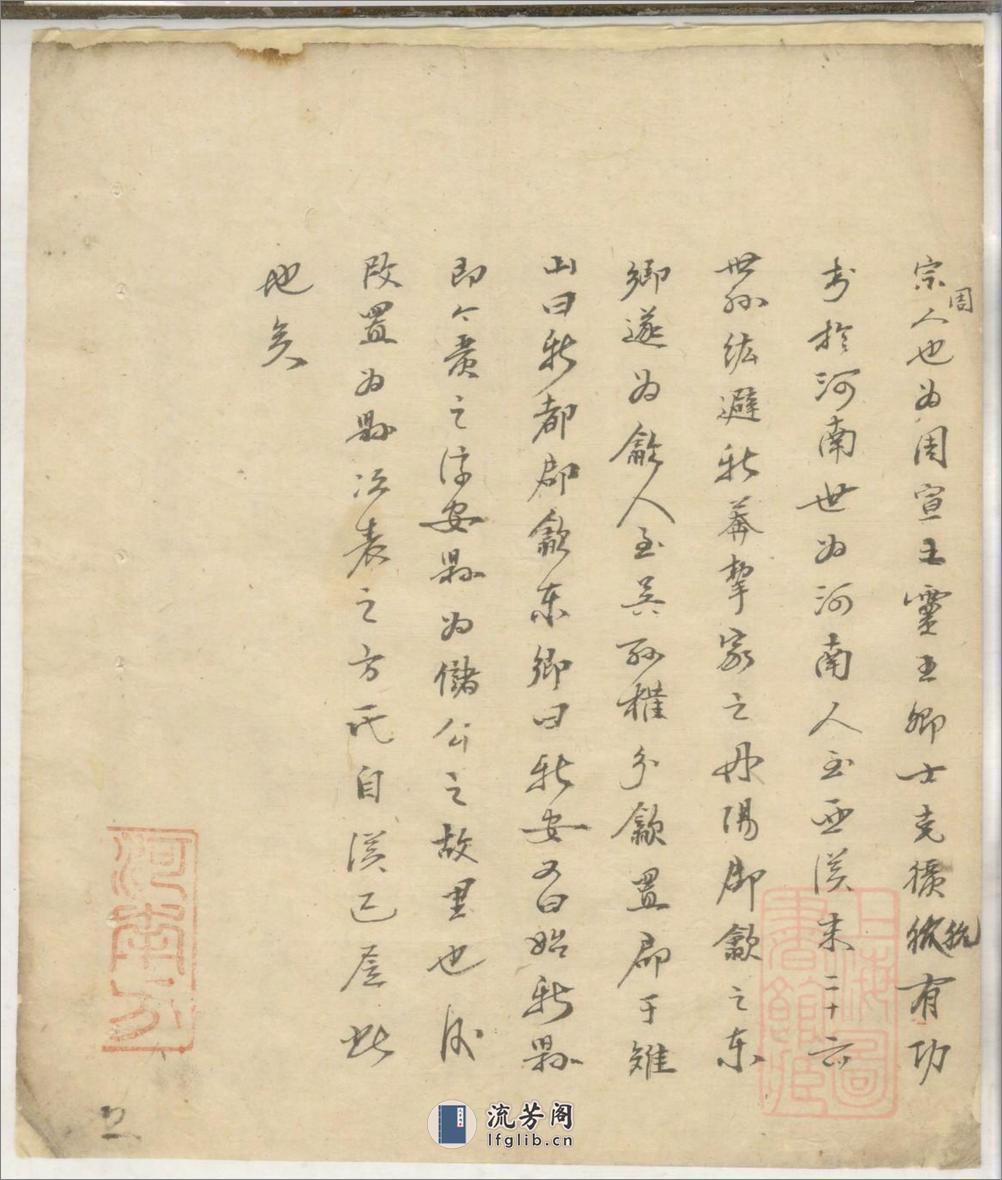 宗周人也为周宣王寰王卿士克玁狁有功
于於河南世为河南人至西漢末二十六
世孙紘避新莽挈家之丹陽郡歙之东
鄉遂为歙人至吴孙權分歙置郡于雉
山曰新都郡歙东鄉曰新安又曰始新縣
即今嚴之淳安縣为儲公之故里也後
改置为縣次表之方氏自漢已居此
地矣
河南方
上海圖書館藏
流芳阁
lfglib.cn